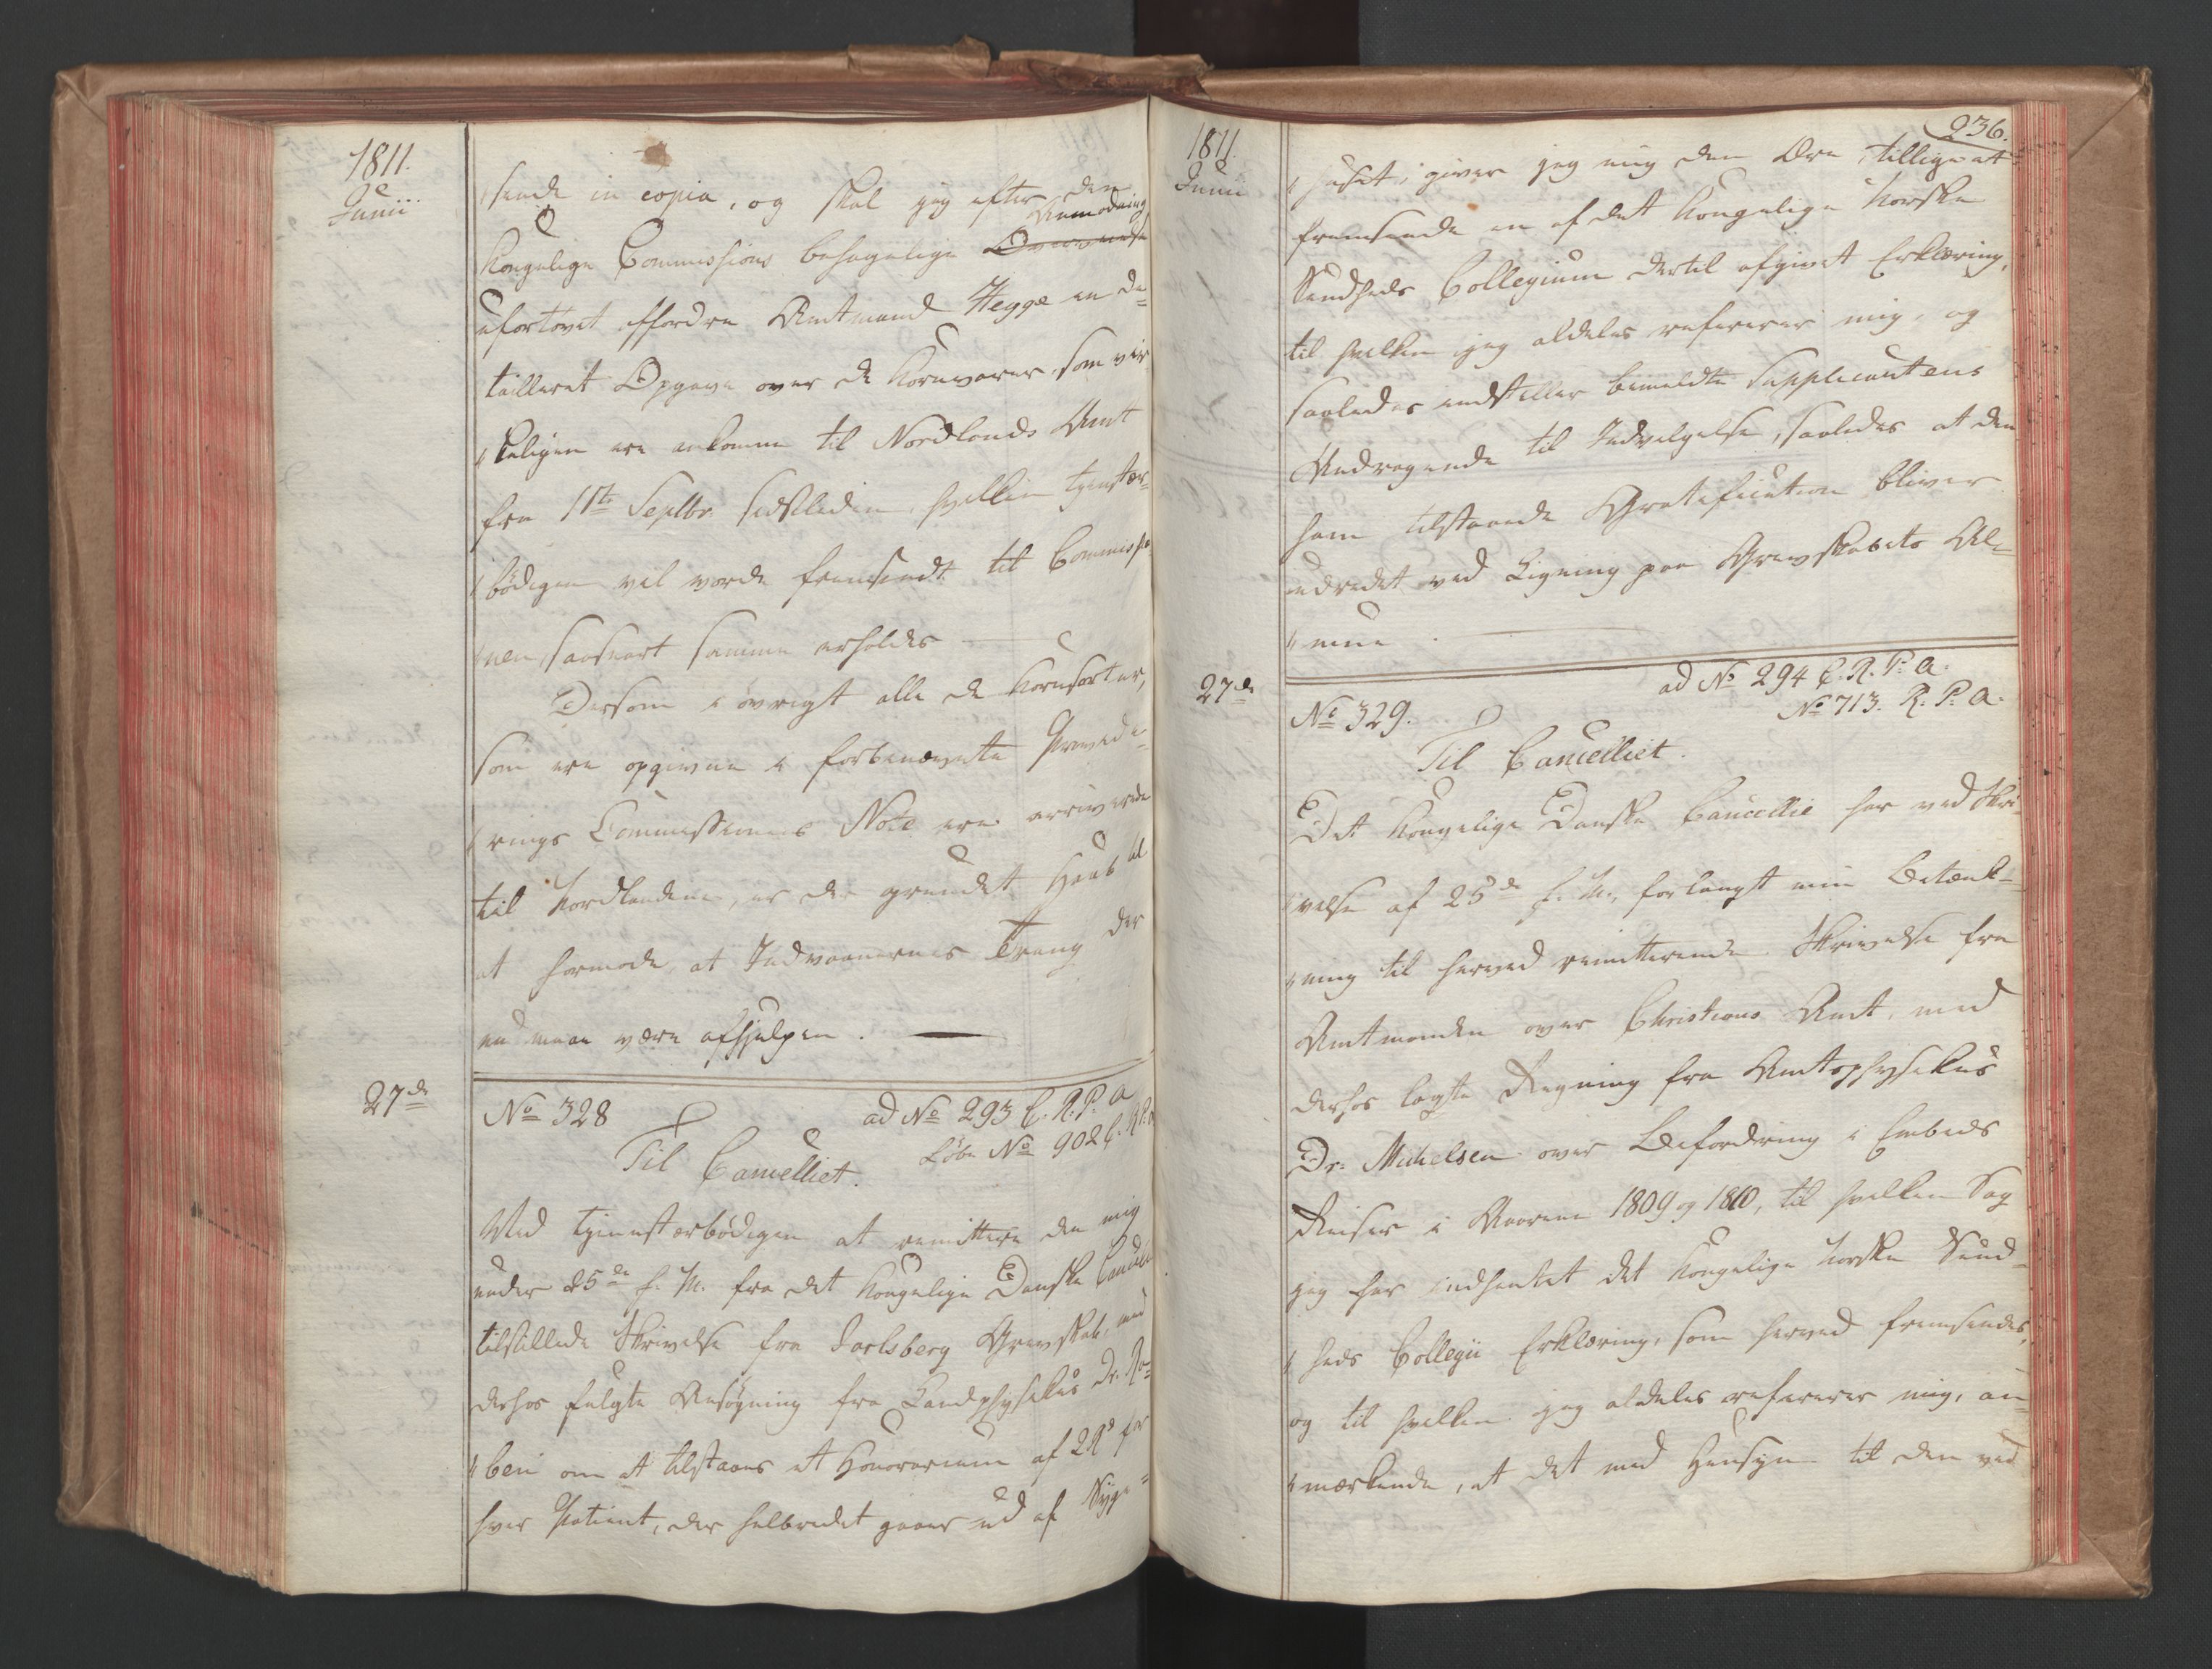 1811.
Junii
sende in copia, og skal jeg efter den
Kongelige Commissions behagelige Anmodning
ufortövet affordre Amtmand Hegge en de=
tailleret Opgave over de Kornvarer, som vir
keligen ere ankomne til Nordlands Amt
fra 1ste Septbr. sidstleden, hvilken tjenstær=
bödigen vil vorde fremsendt til Commissio
nen, saasnart samme erholdes
Dersom i övrigt alle de Kornsorter,
som ere opgivne i forbenævnte Provede=
rings Commissionens Note ere arriverede
til Nordlandene, er der grundet Haab til
at formode, at Indvaanernes Trang der
nu maae være afhjulpen.
27de
No 328
ad No 293 C. R. P. A
Löbe No 902 C. R. P. A
Til Cancelliet.
Ved tjenstærbödigen at remittere den mig
under 25de f. M. fra det Kongelige Danske Cancelli
tilstillede Skrivelse fra Jarlsberg Grevskab, med
derhos fulgte Ansögning fra Landphysikus Dr. Ro=
ben om at tilstaaes et Honorarium af 2 Rd for
hver Patient, der helbredet gaaer ud af Syge=
236.
1811.
Junii
huset, giver jeg mig den Ære tillige at
fremsende en af det Kongelige Norske
Sundheds Collegium dertil afgivet Erklæring,
til hvilken jeg aldeles refererer mig, og
saaledes indstiller bemeldte Supplicantens
Andragende til Indvilgelse, saaledes at den
ham tilstaaende Gratification bliver
udredet ved Ligning paa Grevskabets Al=
mue
27de
No 329.
ad No 294 C. R. P. A.
No 713. R. P. A.
Til Cancelliet.
Det Kongelige Danske Cancellie har ved Skri=
velse af 25de f. M. forlangt min Betænk=
ning til herved remitterende Skrivelse fra
Amtmanden over Christians Amt, med
derhos lagte Regning fra Amtsphysikus
Dr. Michelsen over Befordring i Embeds
Reiser i Aarene 1809 og 1810, til hvilken Sag
jeg har indhentet det Kongelige Norske Sund=
heds Collegii Erklæring, som herved fremsendes,
og til hvilken jeg aldeles refererer mig, an=
mærkende, at det med Hensyn til den ved